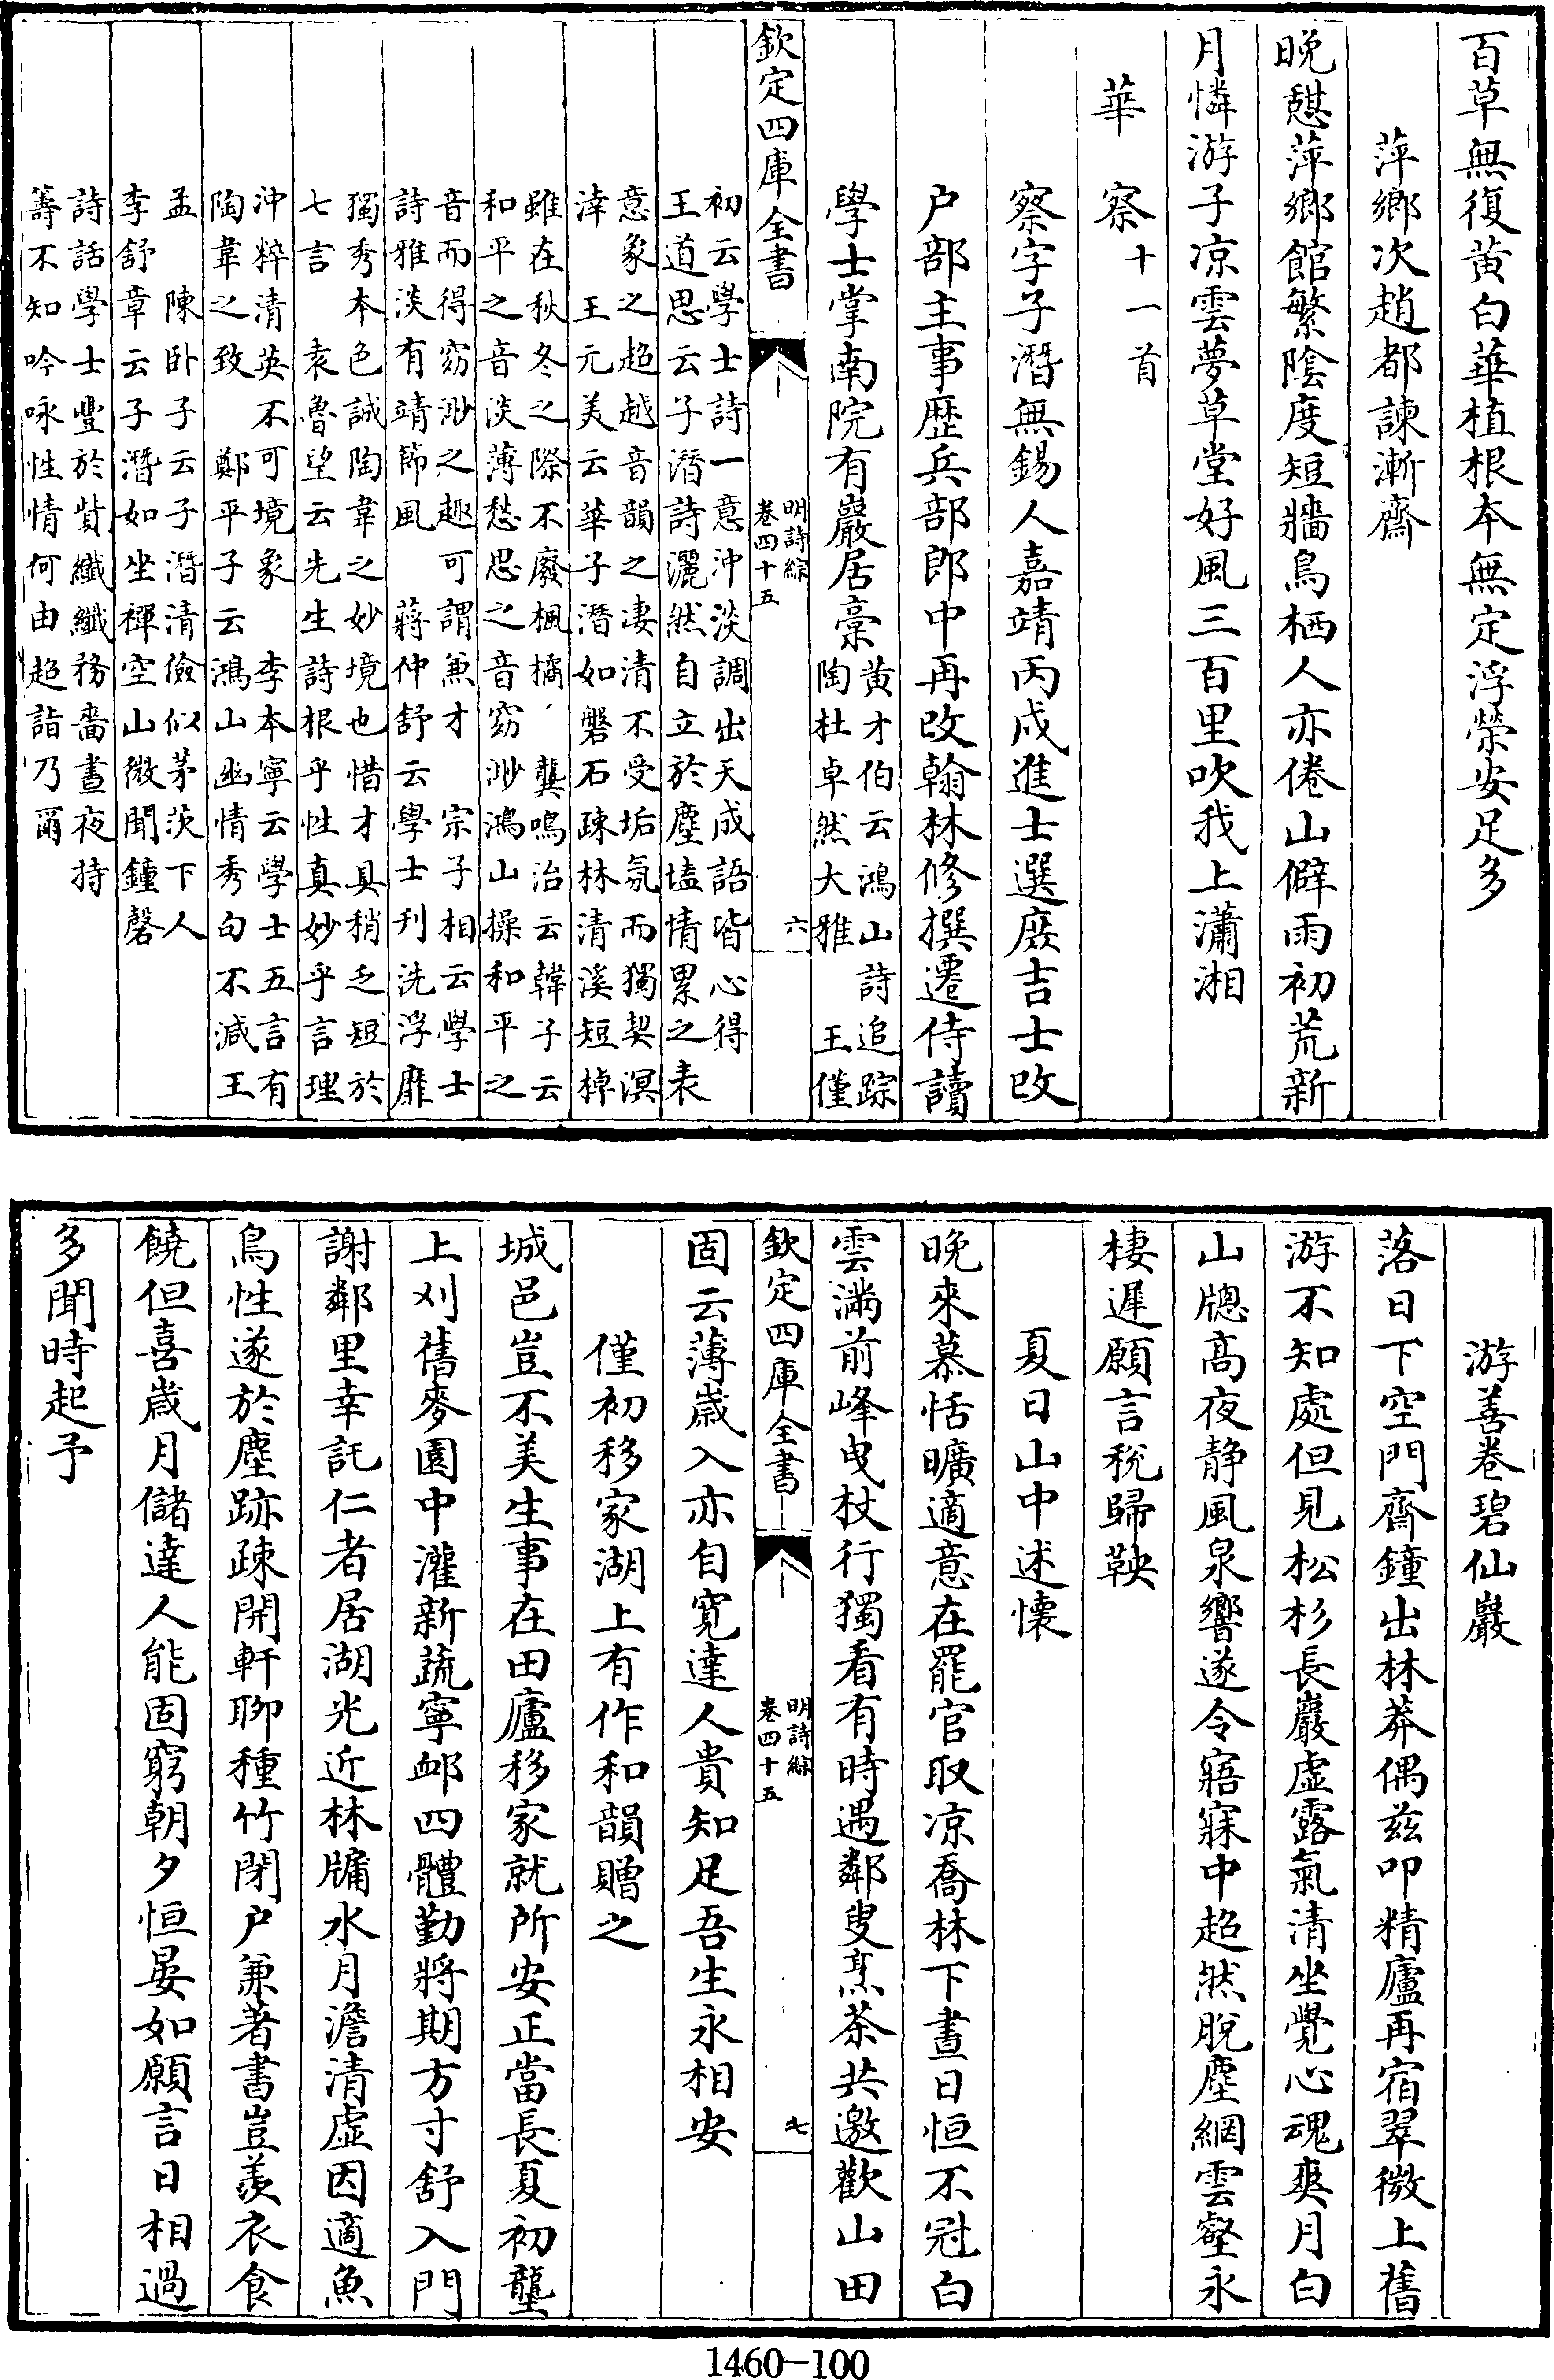 百草無復黄白華植根本無定浮榮安足多
萍鄉次趙都諫漸齋
晚憇萍鄉館繁陰度短牆鳥栖人亦倦山僻雨初荒新
月憐游子凉雲夢草堂好風三百里吹我上瀟湘
華察十一首
察字子潛無錫人嘉靖丙戌進士選庶吉士改
户部主事歴兵部郎中再改翰林修撰遷侍讀
學士掌南院有巖居稾
黄才伯云鴻山詩追踪
陶杜卓然大雅　王僅
欽定四庫全書
明詩綜
卷四十五
六
初云學士詩一意沖淡調出天成語皆心得
王道思云子潛詩灑然自立於塵壒情累之表
意象之超越音韻之淒清不受垢氛而獨契溟
涬　王元美云華子潛如磐石疎林清溪短棹
雖在秋冬之際不廢楓橘　龔鳴治云韓子云
和平之音淡薄愁思之音窈渺鴻山操和平之
音而得窈渺之趣可謂兼才　宗子相云學士
詩雅淡有靖節風　蔣仲舒云學士刋洗浮靡
獨秀本色誠陶韋之妙境也惜才具稍乏短於
七言　袁魯望云先生詩根乎性真妙乎言理
沖粹清英不可境象　李本寧云學士五言有
陶韋之致　鄭平子云鴻山幽情秀句不減王
孟　陳卧子云子潛清儉似茅茨下人
李舒章云子潛如坐禪空山微聞鐘磬
詩話學士豐於貲纖纖務嗇晝夜持
籌不知吟咏性情何由超詣乃爾
游善卷碧仙巖
落日下空門齋鐘出林莽偶兹叩精廬再宿翠微上舊
游不知處但見松杉長巖虚露氣清坐覺心魂爽月白
山牕高夜静風泉響遂令寤寐中超然脱塵網雲壑永
棲遲願言税歸鞅
夏日山中述懷
晚來慕恬曠適意在罷官取凉喬林下晝日恒不冠白
雲滿前峰曳杖行獨看有時遇鄰叟烹茶共邀歡山田
欽定四庫全書
明詩綜
卷四十五
七
固云薄歲入亦自寛達人貴知足吾生永相安
僅初移家湖上有作和韻贈之
城邑豈不美生事在田廬移家就所安正當長夏初壟
上刈舊麥園中灌新蔬寧卹四體勤將期方寸舒入門
謝鄰里幸託仁者居湖光近林牖水月澹清虚因適魚
鳥性遂於塵跡疎開軒聊種竹閉户兼著書豈羡衣食
饒但喜歲月儲達人能固窮朝夕恒晏如願言日相過
多聞時起予
1460-100